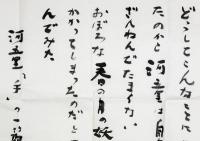 どうしてこんなことに
たのかと 河童は自
ざんねんでたまらない
おぼろな 春の月の妖
かかってしまったのだと
んでみた
河童「手」の一節